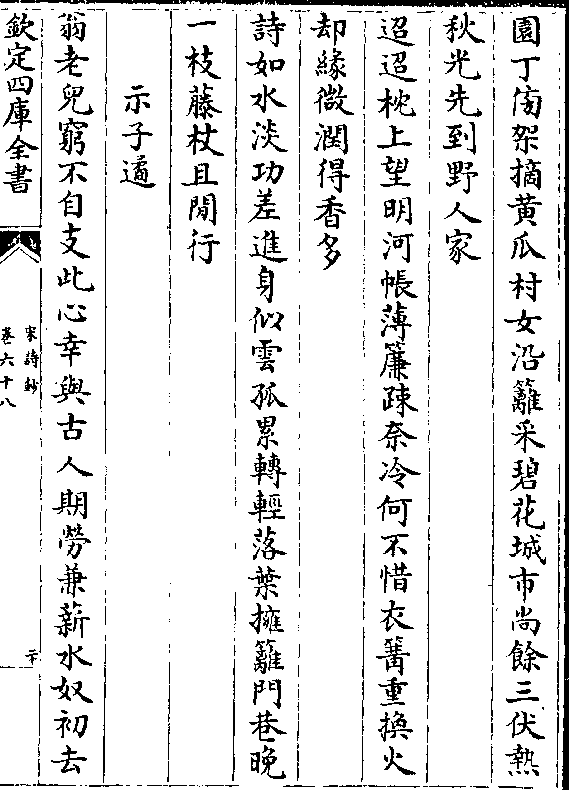 園丁傍架摘黄瓜村女沿籬采碧花城市尚餘三伏熱
秋光先到野人家
迢迢枕上望明河帳薄簾疎奈冷何不惜衣篝重換火
却緣微潤得香多
詩如水淡功差進身似雲孤累轉輕落葉擁籬門巷晚
一枝藤杖且閒行
示子遹
翁老兒窮不自支此心幸與古人期勞兼薪水奴初去
欽定四庫全書
宋詩鈔
卷六十八